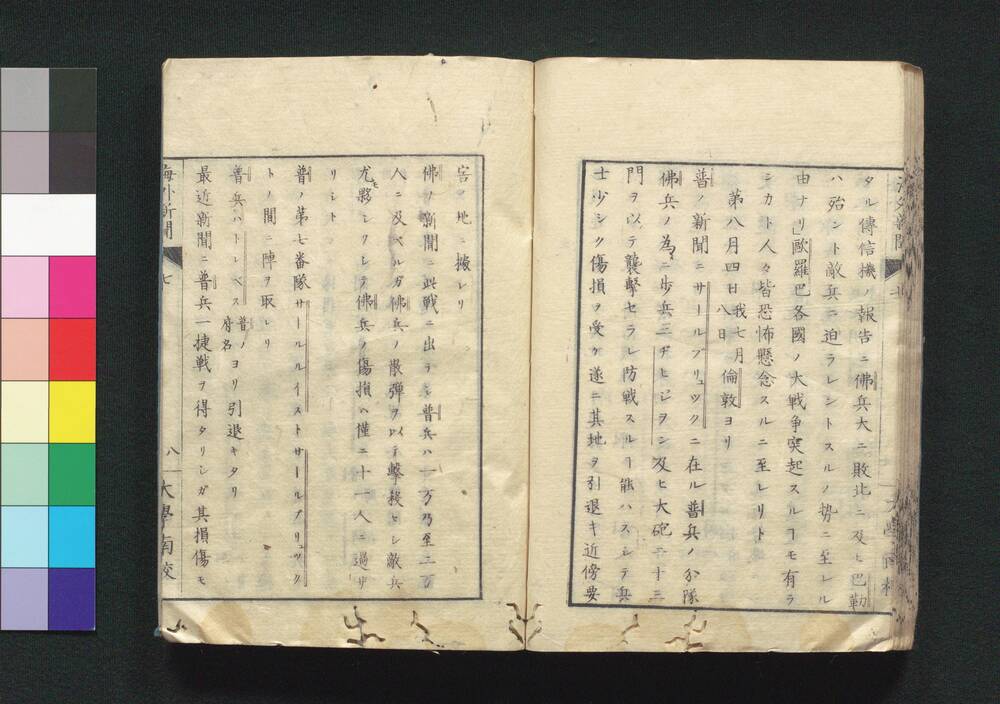 タル傳信機ノ報告ニ佛兵大ニ敗北ニ及ヒ巴勒
ハ殆ント敵兵ニ迫ラレントスルノ勢ニ至レル
由ナリ」歐羅巴各國ノ大戦争突起スルヿモ有ラ
ンカト人々皆恐怖懸念スルニ至レリト
第八月四日我七月八日倫敦ヨリ
普ノ新聞ニサールブリュックニ在ル普兵ノ分隊
佛兵ノ為ニ歩兵三ヂヒジヲン及ヒ大砲二十三
門ヲ以テ襲撃セラレ防戦スルヿ能ハスシテ兵
士少シク傷損ヲ受ケ遂ニ其地ヲ引退キ近傍要
害ノ地ニ據レリ
佛ノ新聞ニ此戦ニ出テシ普兵ハ一万乃至二万
人ニ及ベルガ佛兵ノ散弾ヲ以テ撃殺セシ敵兵
尤モ夥シクシテ佛兵ノ傷損ハ僅ニ十一人ニ過ザ
リシト
普ノ第七番隊サールルイストサールブリュック
トノ間ニ陣ヲ取レリ
普兵ハトレベス普ノ府名ヨリ引退キタリ
最近新聞ニ普兵一捷戦ヲ得タリシガ其損傷モ
海外新聞
七
八
大學南校